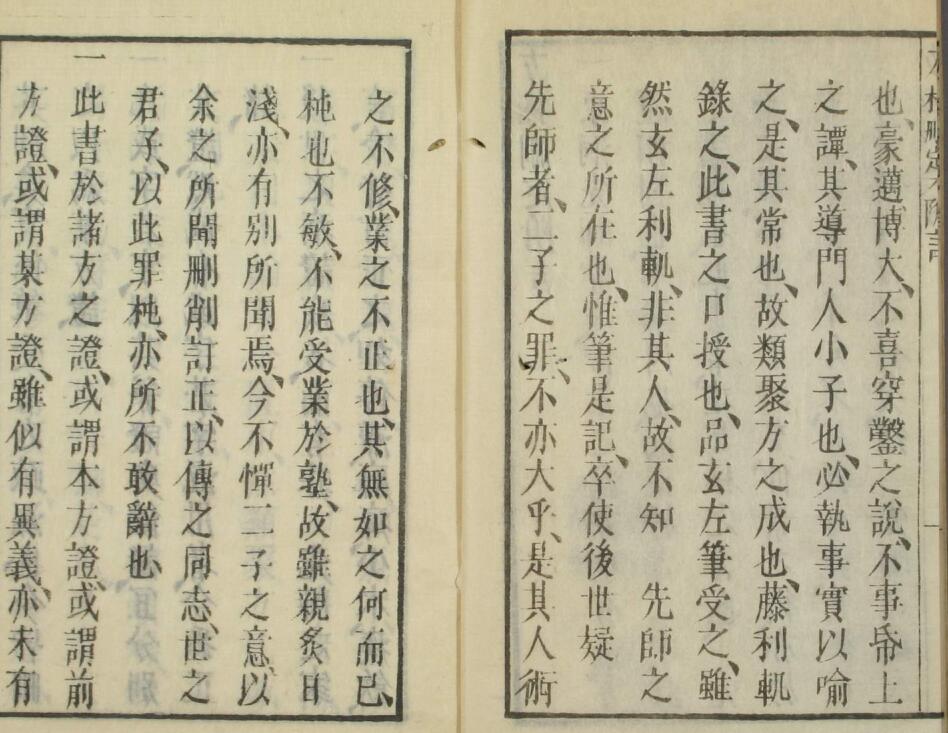 也、豪邁博大、不喜穿鑿之說、不事帋上
之譚、其導門人小子也、必執事實以喻
之、是其常也、故類聚方之成也、藤利軌
錄之、此書之口授也、品玄左筆受之、雖
然玄左利軌、非其人、故不知　先師之
意之所在也、惟筆是記、卒使後世疑
先師者、二子之罪、不亦大乎、是其人術
之不修、業之不正也、其無如之何而已、
杶也不敏、不能受業於塾、故雖親炙日
淺、亦有別所聞焉、今不憚二子之意、以
余之所聞刪削訂正、以傳之同志、世之
君子、以此罪杶、亦所不敢辭也、
一此書於諸方之證、或謂本方證、或謂前
方證、或謂某方證、雖似有異義、亦未有